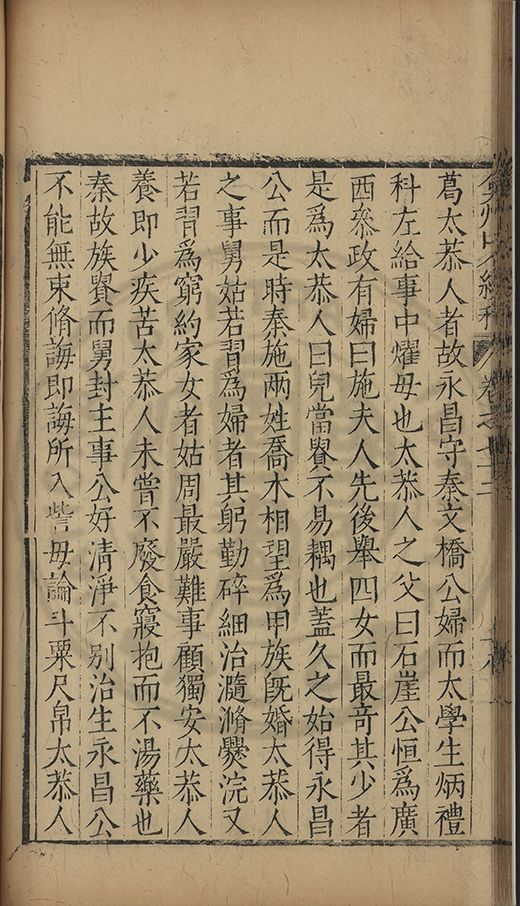 葛太恭人者故永昌守秦文橋公婦而太學生炳禮
科左給事中燿母也太恭人之父曰石崖公恒為廣
西叅政有婦曰施夫人先後舉四女而最竒其少者
是為太恭人曰兒當貴不易耦也蓋久之始得永昌
公而是時秦施兩姓喬木相望為甲族旣婚太恭人
之事舅姑若習為婦者其躬勤碎細治瀡滫爨浣又
若習為窮約家女者姑周最嚴難事顧獨安太恭人
養即少疾苦太恭人未嘗不廢食寢抱而不湯藥也
秦故族貴而舅封主事公好清淨不別治生永昌公
不能無束脩誨即誨所入訾毋論斗粟尺帛太恭人